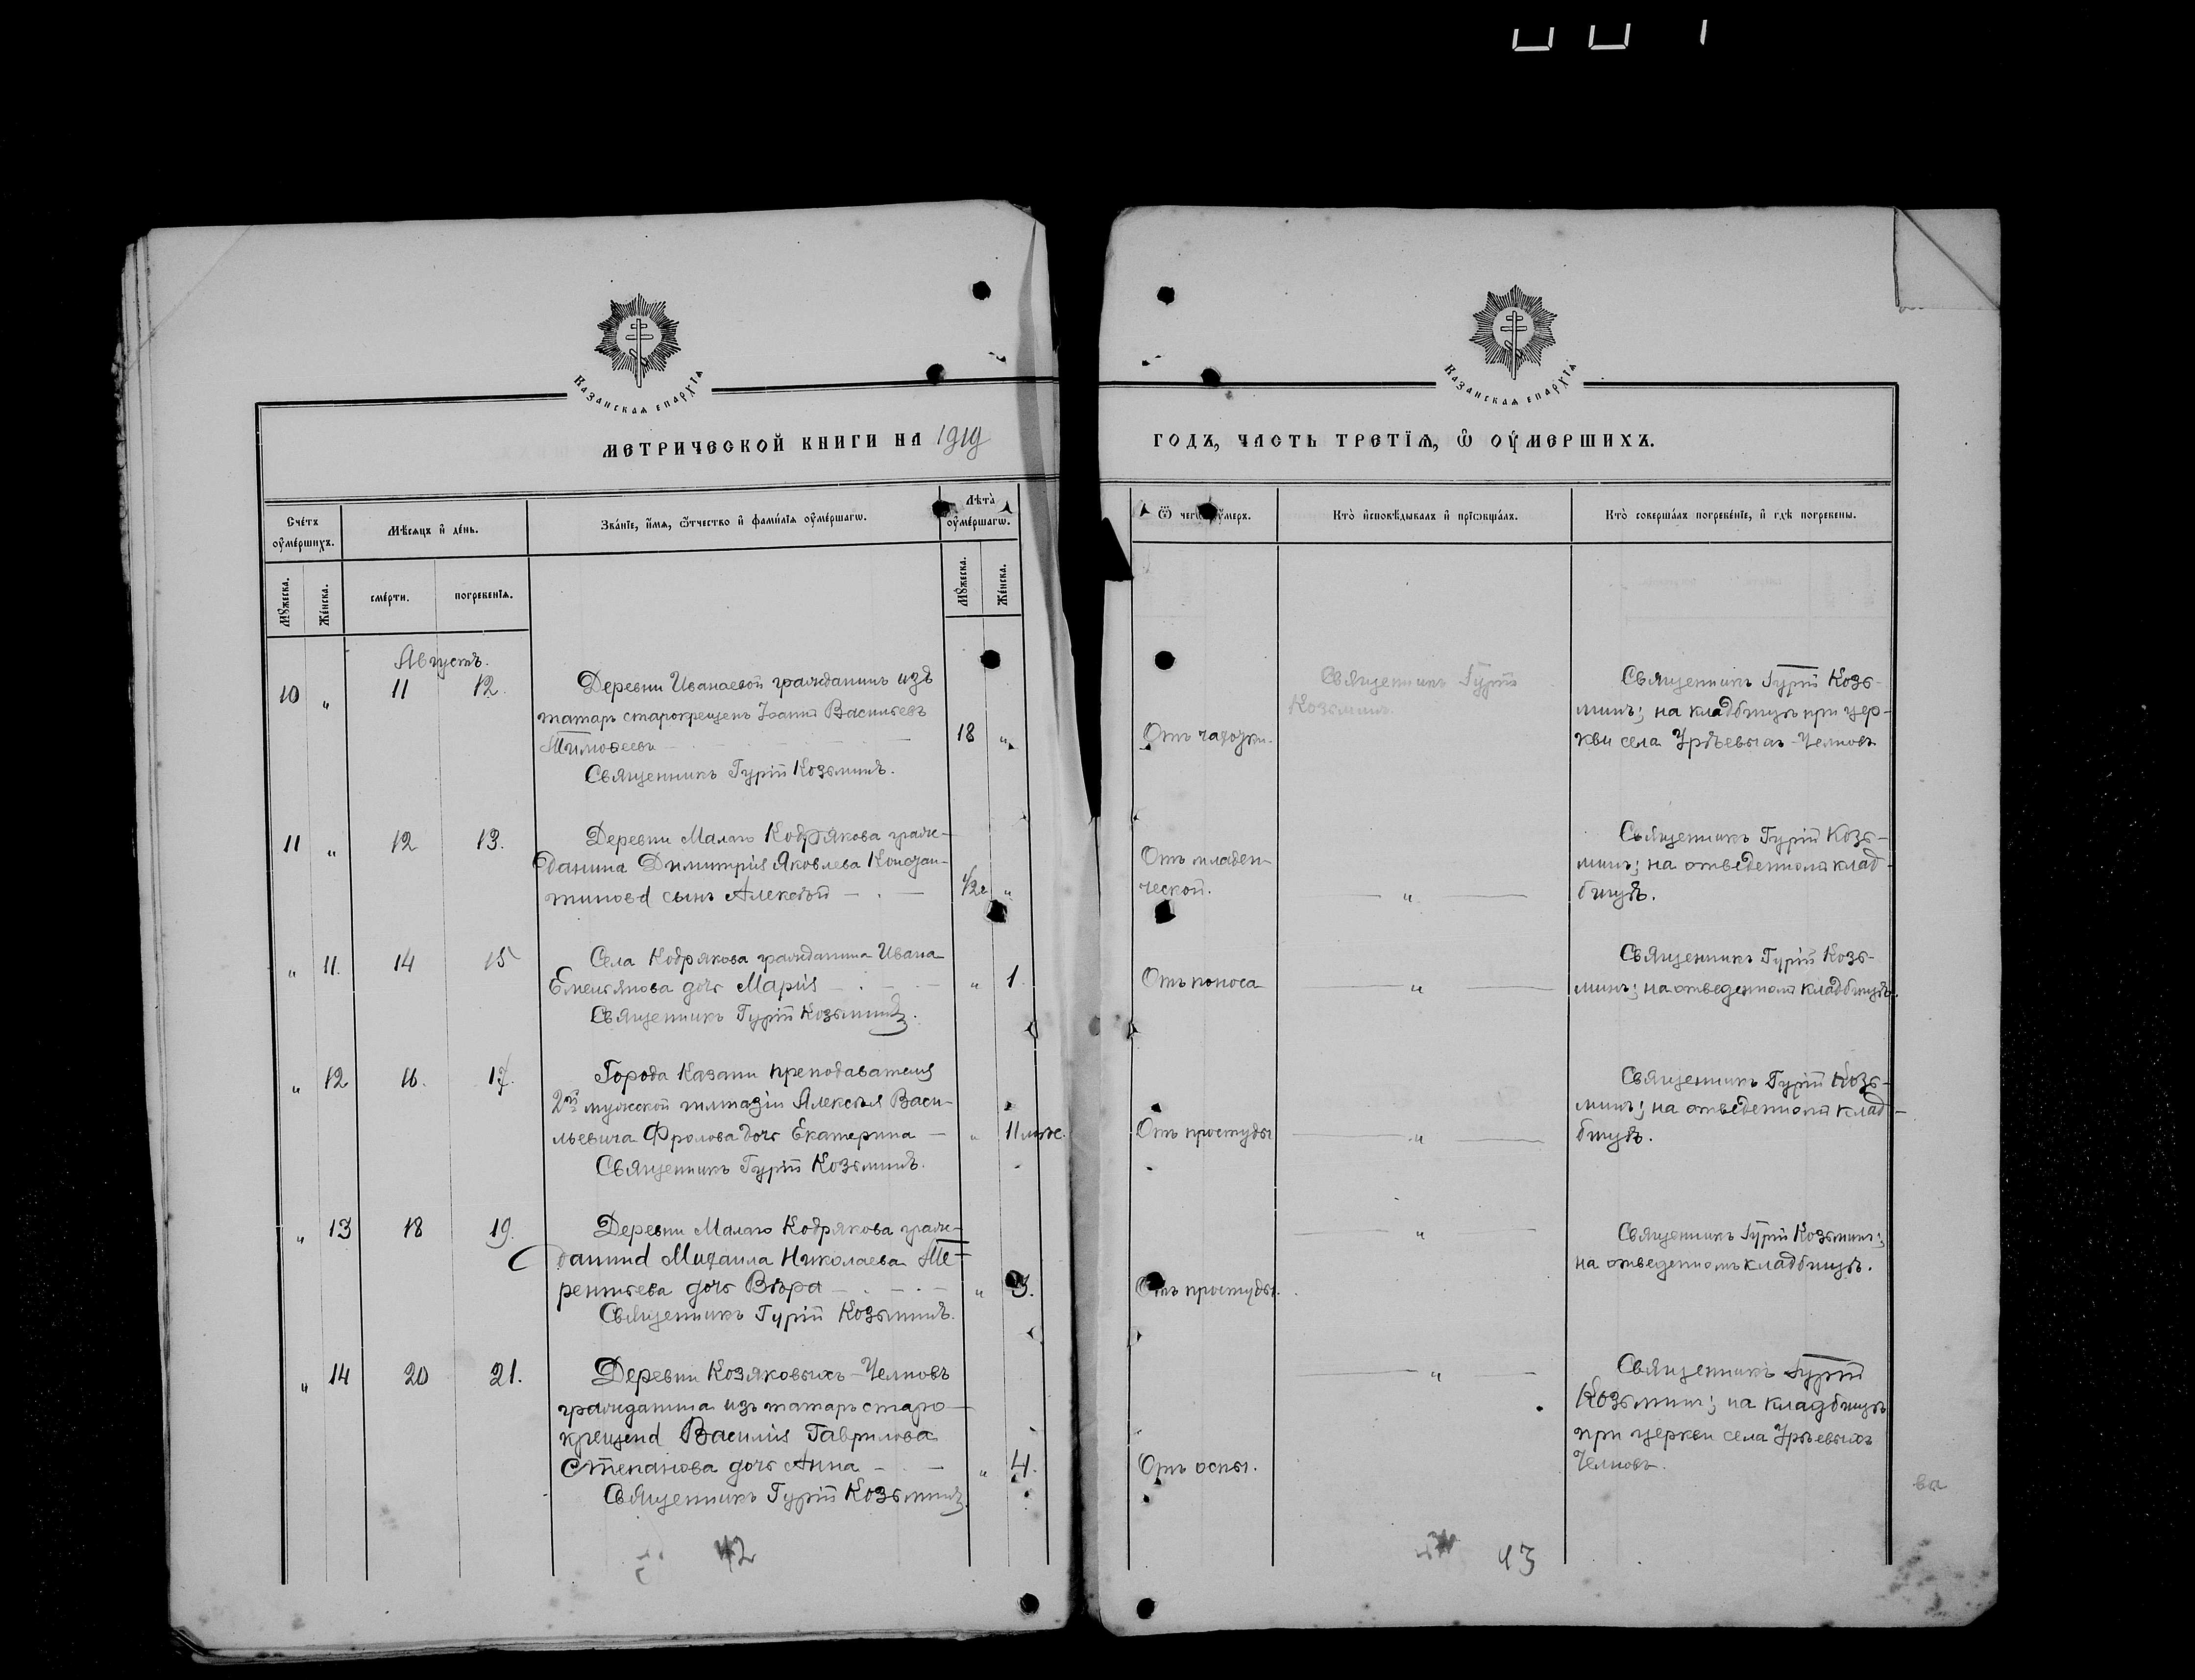 Казанская епархїя
Казанская епархїя
МЕТРИЧЕСКОЙ КНИГИ НА 1919
ГОДЪ, ЧАСТЬ ТРЕТЇѦ, Ѡ ОУМЕРШИХЪ.
Счетъ оумершихъ.
Мѣсяцъ и день.
Званїе, имѧ, ѿчество и фамилїѧ оумершагѡ.
Лѣта оумершагѡ.
Ѿ чегѡ оумеръ.
Кто исповѣдывалъ и прїѡбщалъ.
Кто совершалъ погребенїе, и гдѣ погребены.
Мꙋжеска.
Женска.
смерти.
погребенїѧ.
Мꙋжеска.
Женска.
Августъ.
10 " 11 12.
Деревни Иванаевой гражданинъ изъ
татаръ старокрещенъ Іоаннъ Васильевъ
Тимоѳеевъ
18 "
Священникъ Гурій Козьминъ.
Отъ чахотки.
Священникъ Гурій
Козьминъ.
Священникъ Гурій Козь-
минъ; на кладбищѣ при цер-
кви села Урѣевыхъ-Челновъ
11 " 12 13.
Деревни Малаго Кодрякова граж-
данина Димитрія Яковлева Констан-
тинова сынъ Алексѣй
1/2 "
Отъ младен-
ческой.
"
Священникъ Гурій Козь-
минъ; на отведенномъ клад-
бищѣ.
" 11. 14 15
Села Кодрякова гражданина Ивана
Емельянова дочь Марія
" 1.
Священникъ Гурій Козьминъ.
Отъ поноса
"
Священникъ Гурій Козь-
минъ; на отведенномъ кладбищѣ.
" 12 16. 17.
Города Казани преподавателя
2й мужской гимназіи Алексѣя Васи-
льевича Фролова дочь Екатерина
" 11
Священникъ Гурій Козьминъ.
Отъ простуды
"
Священникъ Гурій Козь-
минъ; на отведенномъ клад-
бищѣ.
" 13 18 19.
Деревни Малаго Кодрякова граж-
данина Михаила Николаева Те-
рентьева дочь Вѣра
" 3.
Священникъ Гурій Козьминъ.
Отъ простуды.
"
Священникъ Гурій Козьминъ;
на отведенномъ кладбищѣ.
" 14 20 21.
Деревни Козяковыхъ-Челновъ
гражданина изъ татаръ старо-
крещена Василія Гаврилова
Степанова дочь Анна
" 4.
Священникъ Гурій Козьминъ.
Отъ оспы.
"
Священникъ Гурій
Козьминъ; на кладбищѣ
при церкви села Урѣевыхъ
Челновъ.
42
43